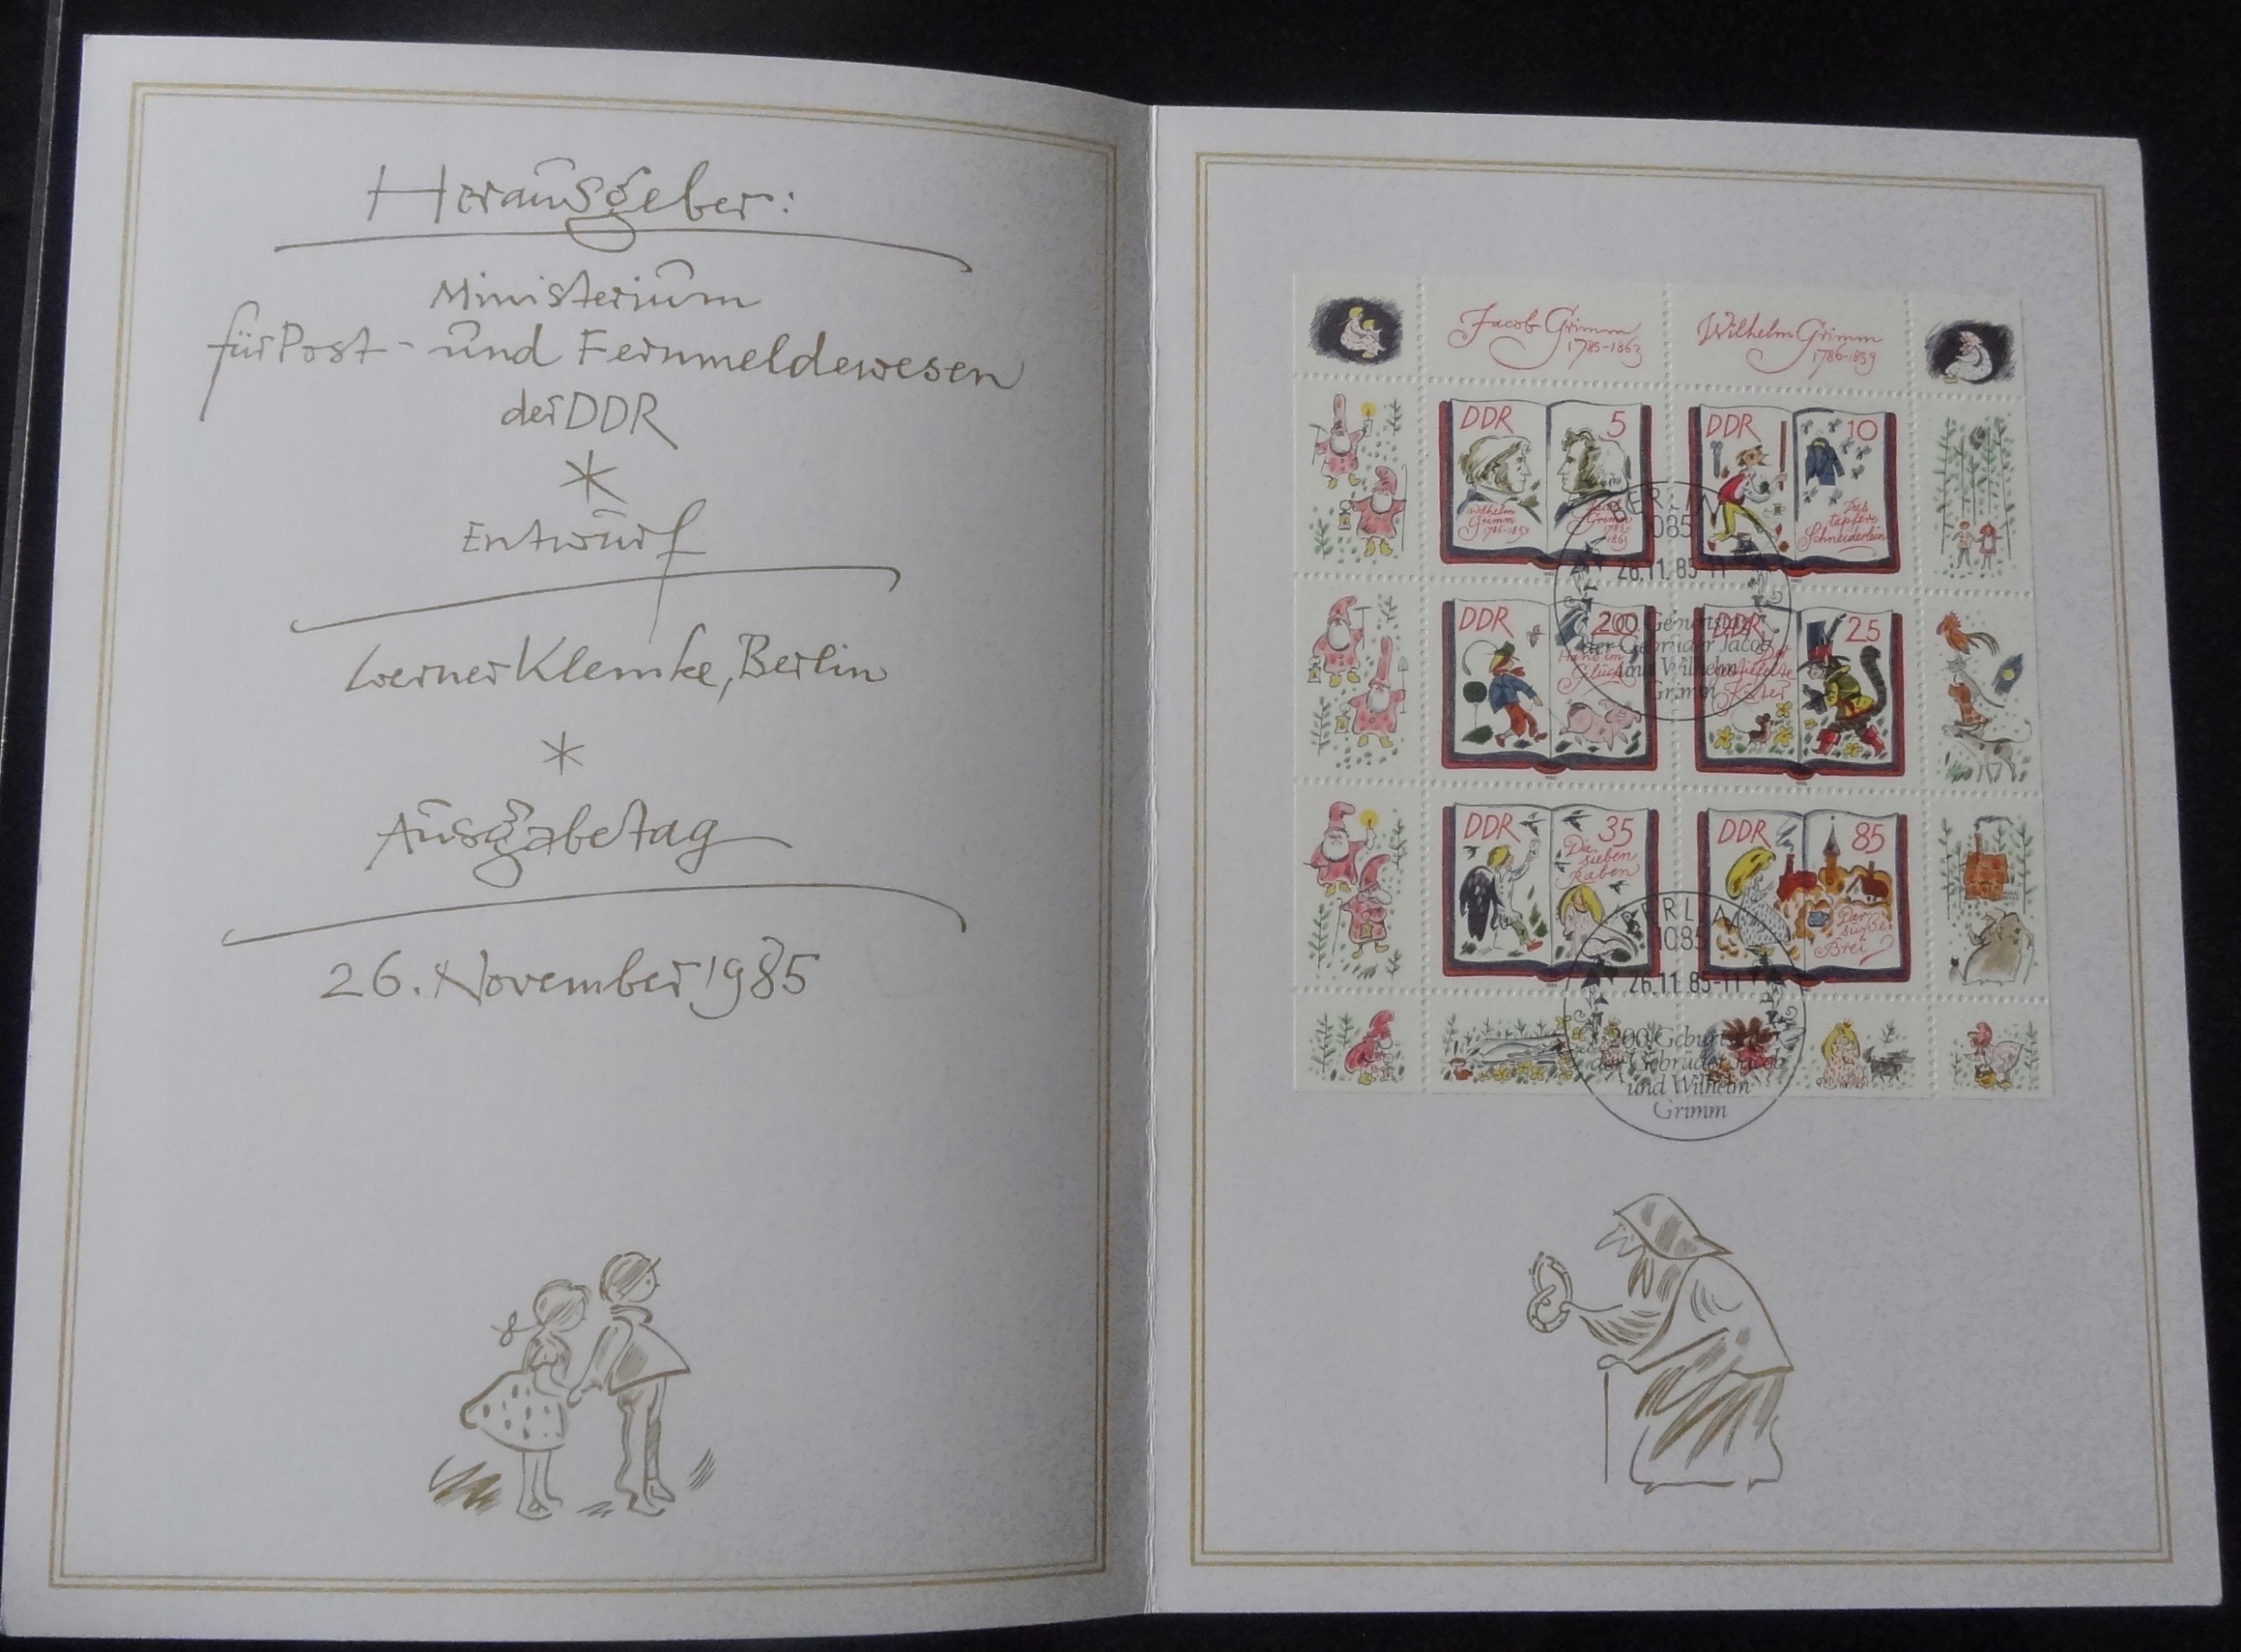 Herausgeber:
Ministerium
für Post- und Fernmeldewesen
der DDR
*
Entwurf
Werner Klemke, Berlin
*
Ausgabetag
26. November 1985
Jacob Grimm
1785-1863
Wilhelm Grimm
1786-1859
DDR 5
Wilhelm
Grimm
1786-1859
Grimm
1785-
1863
DDR 10
Das
tapfere
Schneiderlein
BERLIN
1085
26.11.85-11
200. Geburtstag
der Gebrüder Jacob
und Wilhelm
Grimm
DDR 20
Hans im
Glück
DDR 25
Kater
DDR 35
Die
sieben
Raben
DDR 85
Der
süße
Brei
BERLIN
1085
26.11.85-11
200. Geburtstag
der Gebrüder Jacob
und Wilhelm
Grimm